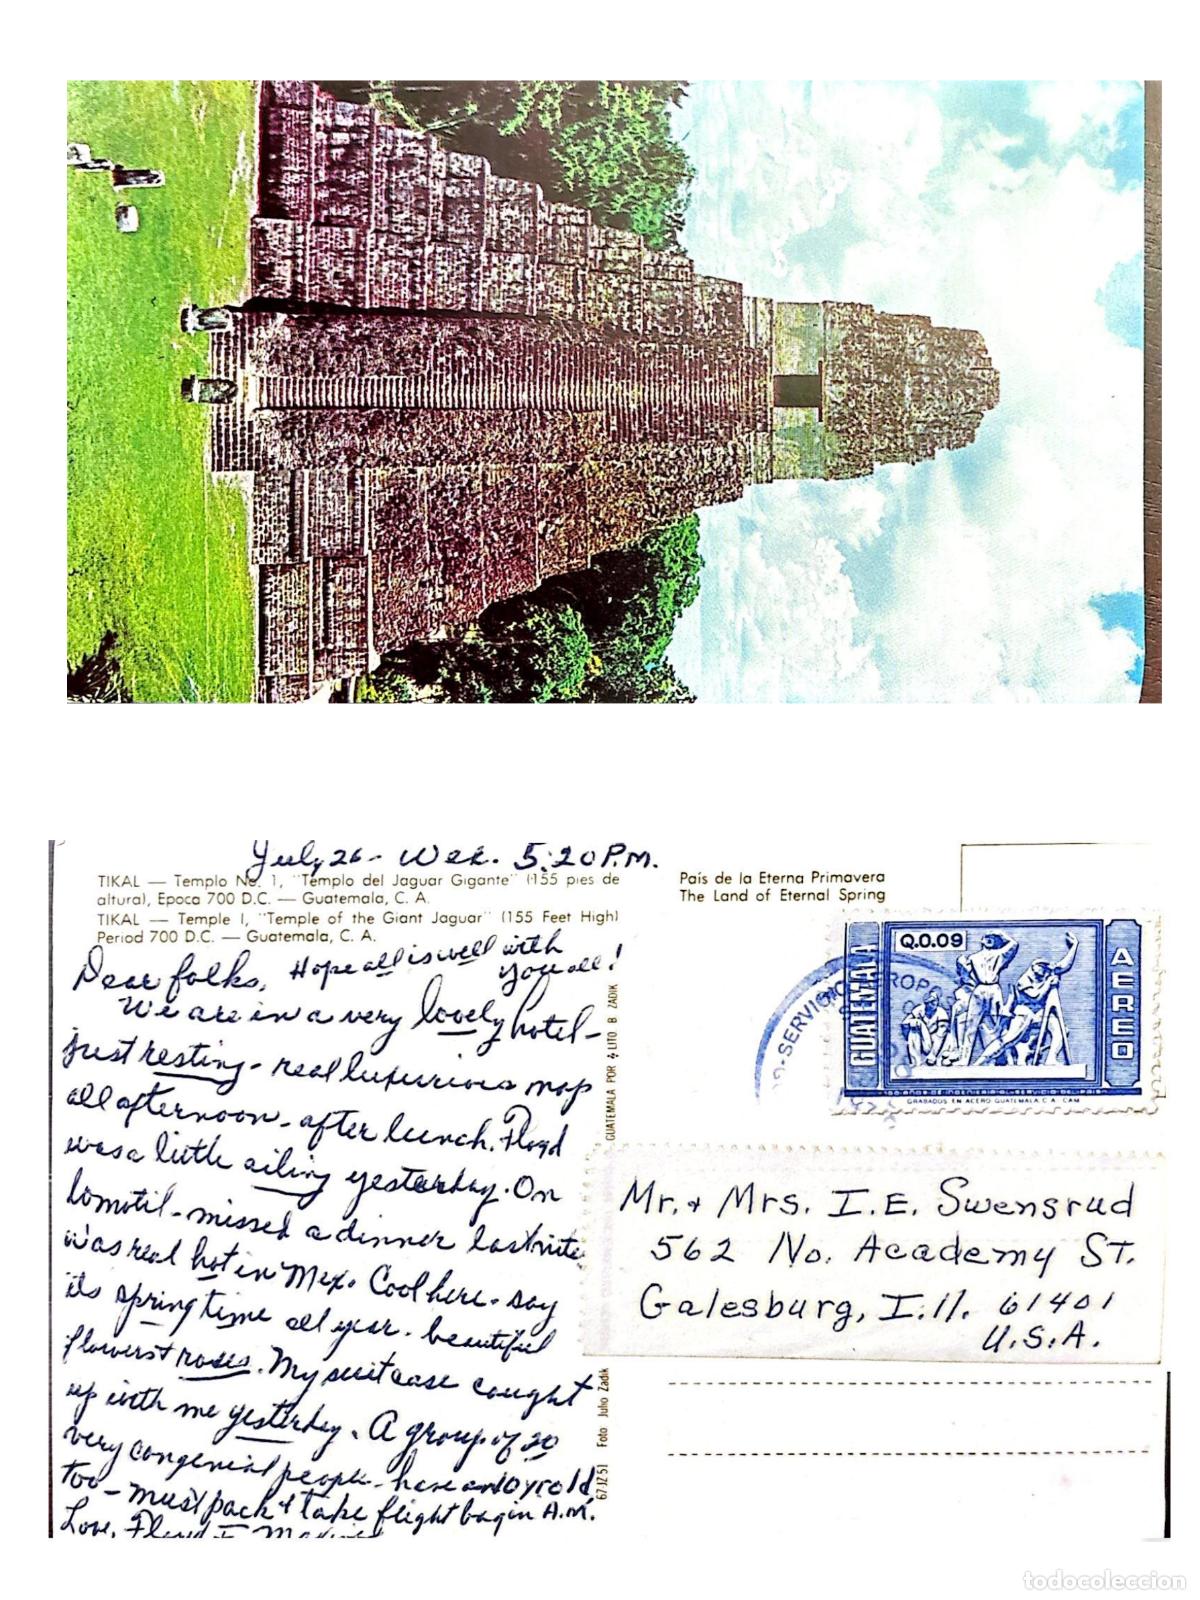 July 26 - Wed. 5:20 P.M.
TIKAL — Templo No. 1, "Templo del Jaguar Gigante" (155 pies de
altura), Epoca 700 D.C. — Guatemala, C. A.
TIKAL — Temple I, "Temple of the Giant Jaguar" (155 Feet High)
Period 700 D.C. — Guatemala, C. A.
Dear folks, Hope all is well with
you all!
We are in a very lovely hotel -
just resting - real luxurious nap
all afternoon - after lunch. Floyd
was a little ailing yesterday. On
lomotil - missed a dinner last nite
Was real hot in Mex. Cool here - say
its springtime all year - beautiful
flowers & roses. My suitcase caught
up with me yesterday. A group of 20
very congenial people - have a 10 yr old
too - must pack & take flight bag in A.M.
Love, Floyd &
GUATEMALA POR LITO B ZADIK
67 JZ 51 Foto Julio Zadik
País de la Eterna Primavera
The Land of Eternal Spring
Q.0.09
GUATEMALA
AEREO
100 AÑOS DE INGENIERIA AL SERVICIO DEL PAIS
GRABADOS EN ACERO GUATEMALA, C. A. CAM
SERVICIO
Mr. & Mrs. I. E. Swensrud
562 No. Academy St.
Galesburg, Ill. 61401
U.S.A.
todocoleccion